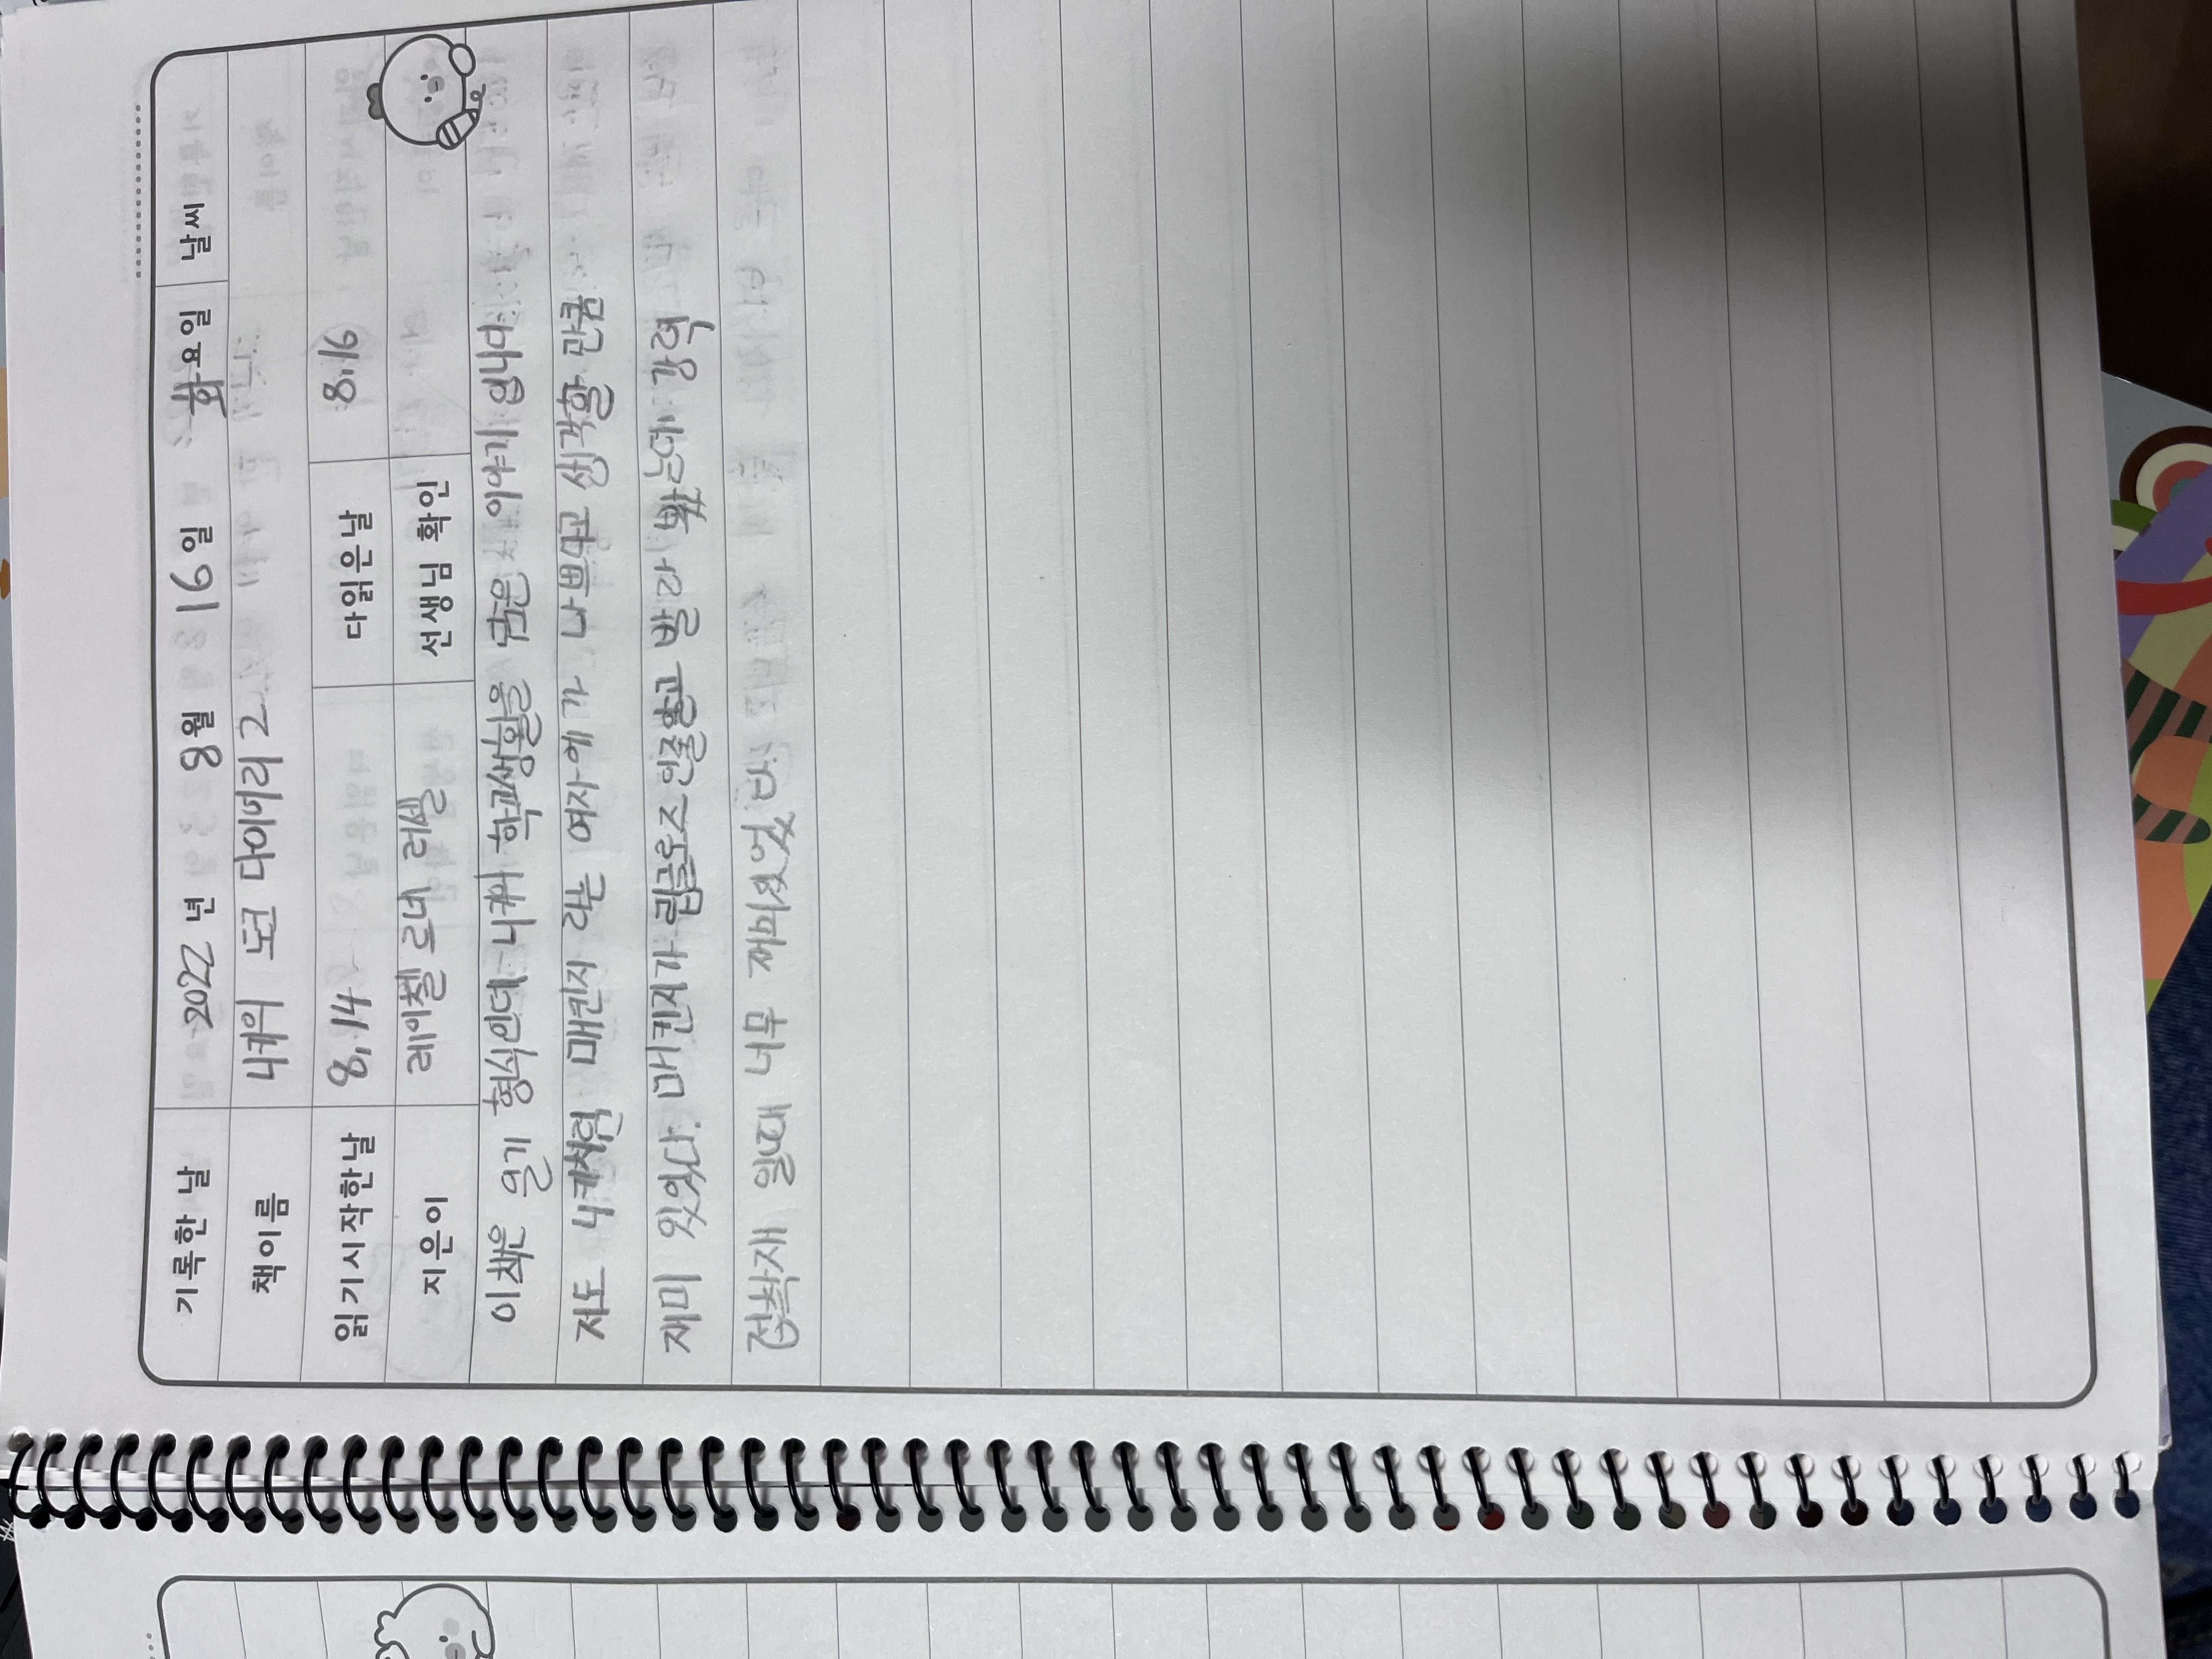 기록한 날 2022 년 8월 16일 화요일 날씨
책이름 니키의 도크 다이어리 2
읽기시작한날 8, 14 다읽은날 8.16
지은이 레이첼 르네 러셀 선생님 확인
이 책은 일기 형식인데 니키의 학교생활을 담은 이야기 입니다.
저도 니키처럼 매킨지 라는 여자에가 나쁘다고 생각할 만큼
재미 있었다. 매킨지가 립글로즈 인줄알고 발라 봤는데 강력
접착재 일때 너무 재미있었다.